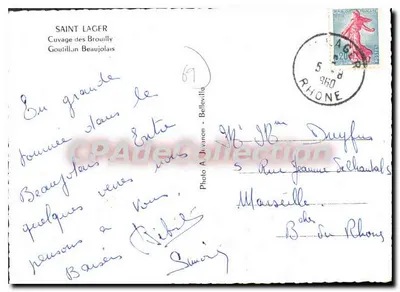 SAINT LAGER
Cuvage des Brouilly
Goutillon Beaujolais
69
En grande
tournée dans le
Beaujolais. Entre
quelques verres nous
pensons à vous.
Baisers
Photo A. Jvernen - Belleville
LAGER
5 - 8
960
RHONE
Mr Mme Dreyfus
5 Rue Jeanne
Marseille
B du Rhone
CPAdeCollection